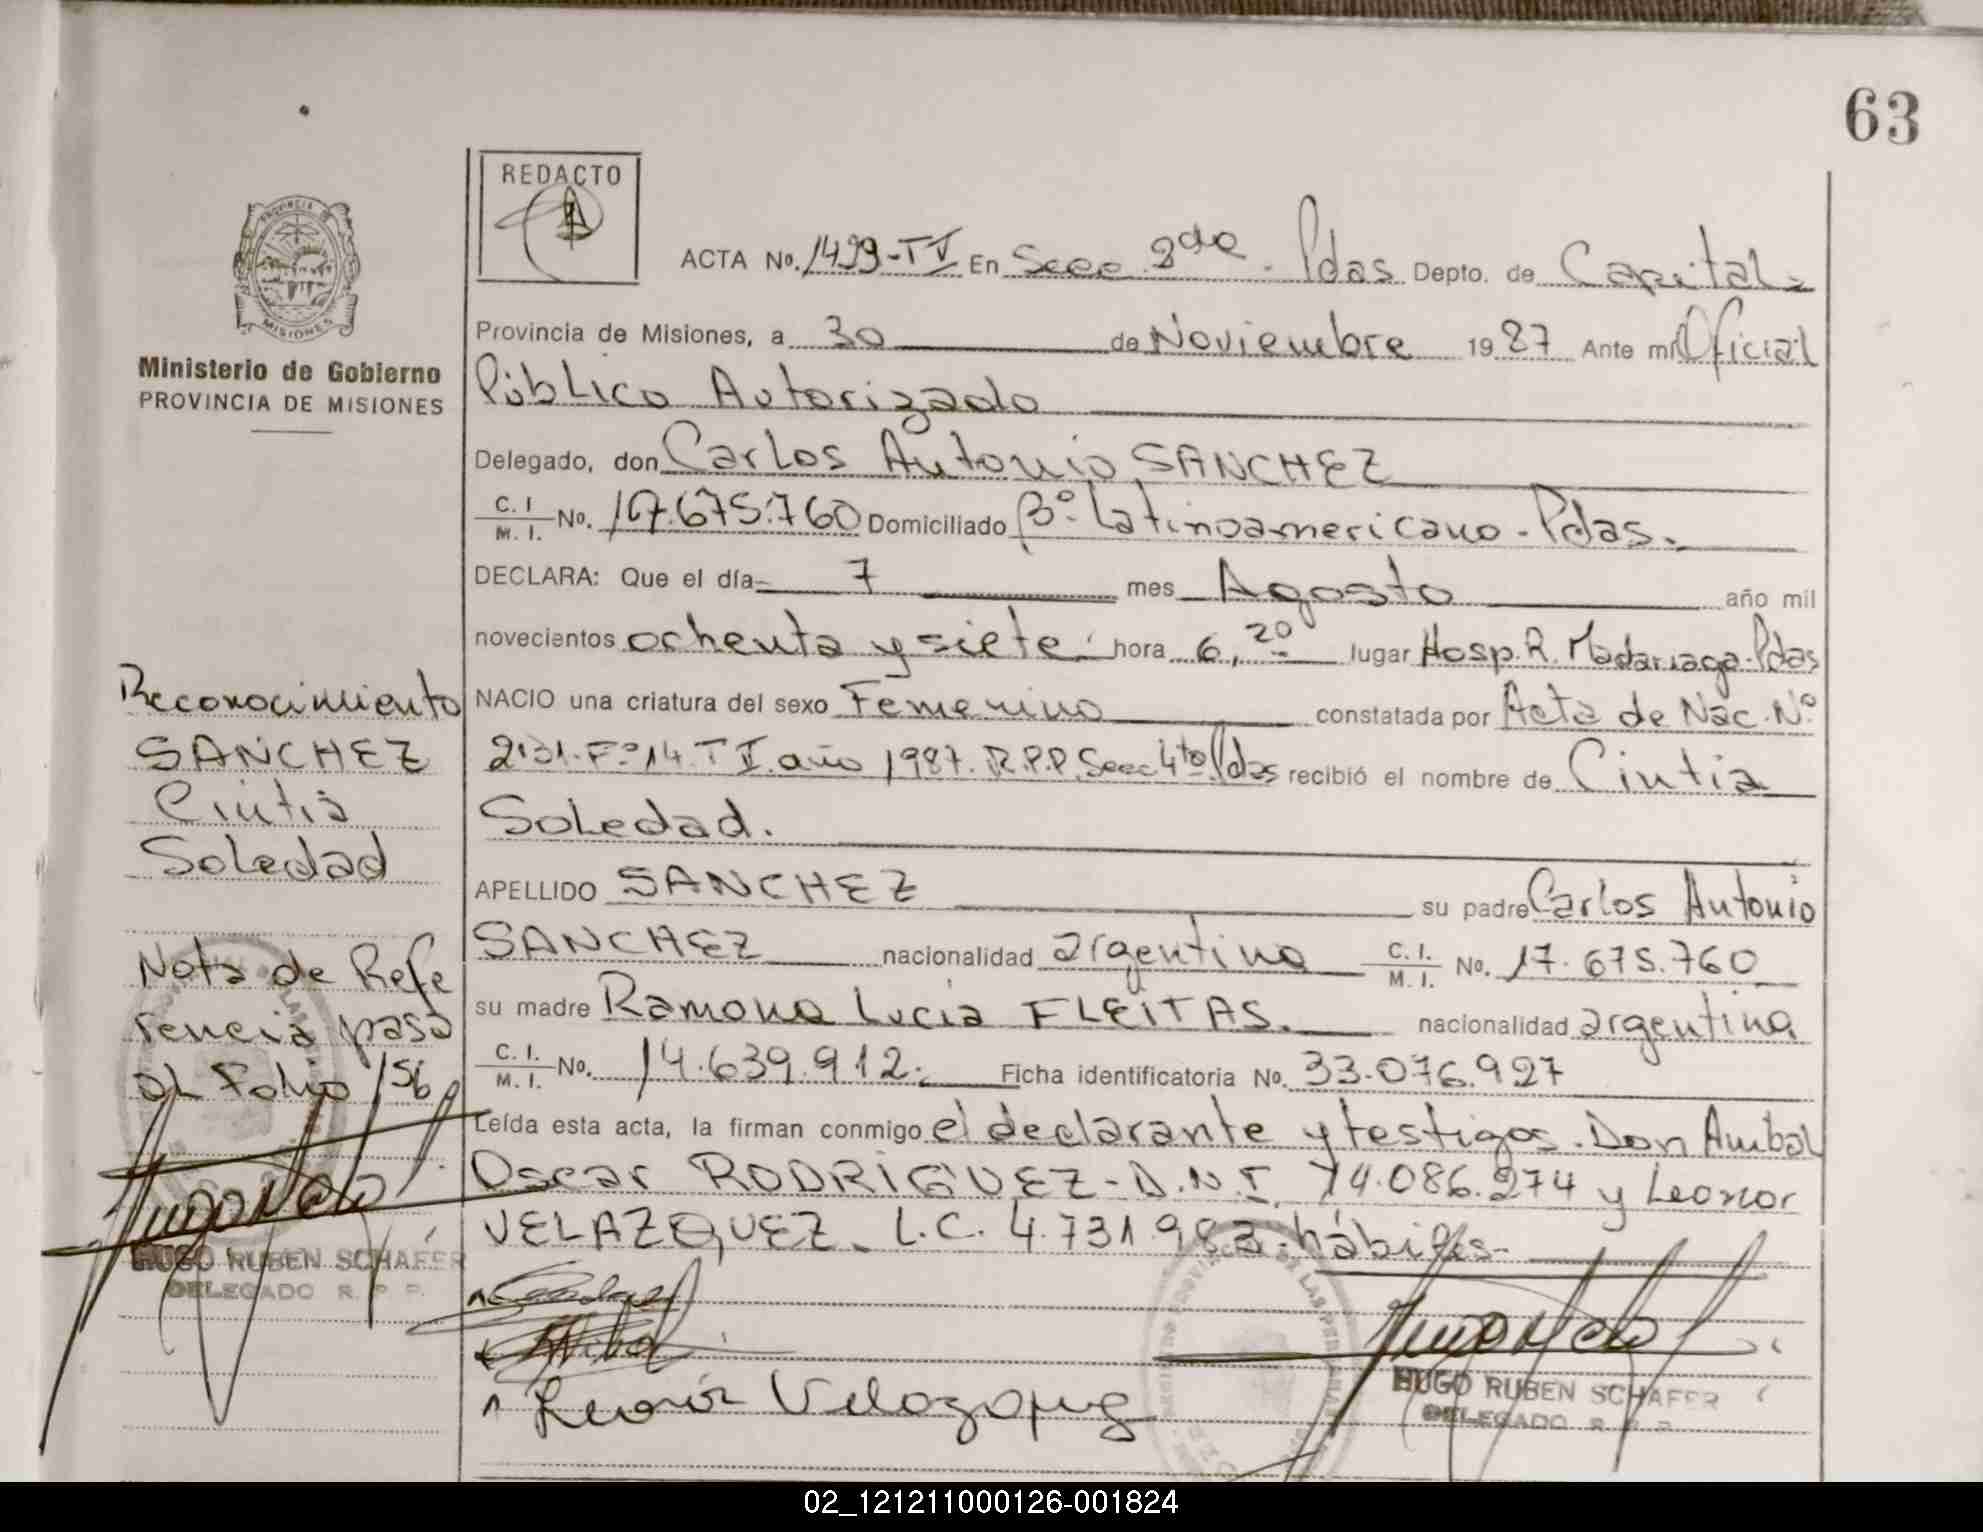 63
REDACTO
PROVINCIA DE
MISIONES
Ministerio de Gobierno
PROVINCIA DE MISIONES
ACTA No. 1499-TV En Secc. 2da. Pdas Depto. de Capital.
Provincia de Misiones, a 30 de Noviembre 1987 Ante mi Oficial
Público Autorizado
Delegado, don Carlos Antonio SANCHEZ
C. I. M. I. No. 17.675.760 Domiciliado Bº. Latinoamericano - Pdas.
DECLARA: Que el día 7 mes Agosto año mil
novecientos ochenta y siete hora 6,20 lugar Hosp. R. Madariaga - Pdas
NACIO una criatura del sexo Femenino constatada por Acta de Nac. Nº
2131. Fº 14. T II. año 1987. R.P.P. Secc 4ta Pdas recibió el nombre de Cintia
Soledad.
APELLIDO SANCHEZ su padre Carlos Antonio
SANCHEZ nacionalidad argentina C. I. M. I. No. 17.675.760
su madre Ramona Lucia FLEITAS. nacionalidad argentina
C. I. M. I. No. 14.639.912. Ficha identificatoria No. 33.076.927
Leída esta acta, la firman conmigo el declarante y testigos. Don Anibal
Oscar RODRIGUEZ - D.N.I. 14.086.274 y Leonor
VELAZQUEZ - L.C. 4.731.983 - hábiles -
Leonor Velazquez
HUGO RUBEN SCHAFER
DELEGADO R. P. P.
Reconocimiento
SANCHEZ
Cintia
Soledad
Nota de Refe
rencia pasa
al Folio 156
HUGO RUBEN SCHAFER
DELEGADO R. P. P.
02_121211000126-001824